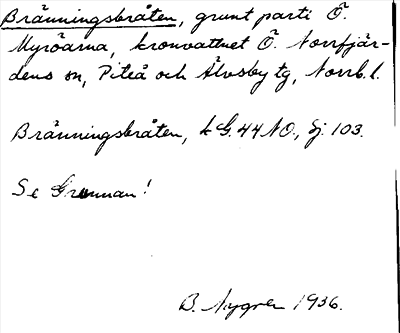 Bränningsbråten, grunt parti Ö.
Myröarna, kronvattnet Ö. Norrfjär-
dens sn, Piteå och Älvsby tg, Norrb. l.
Bränningsbråten, k G. 44 NO., Sj. 103.
Se Grunnan!
B. Nygren 1936.